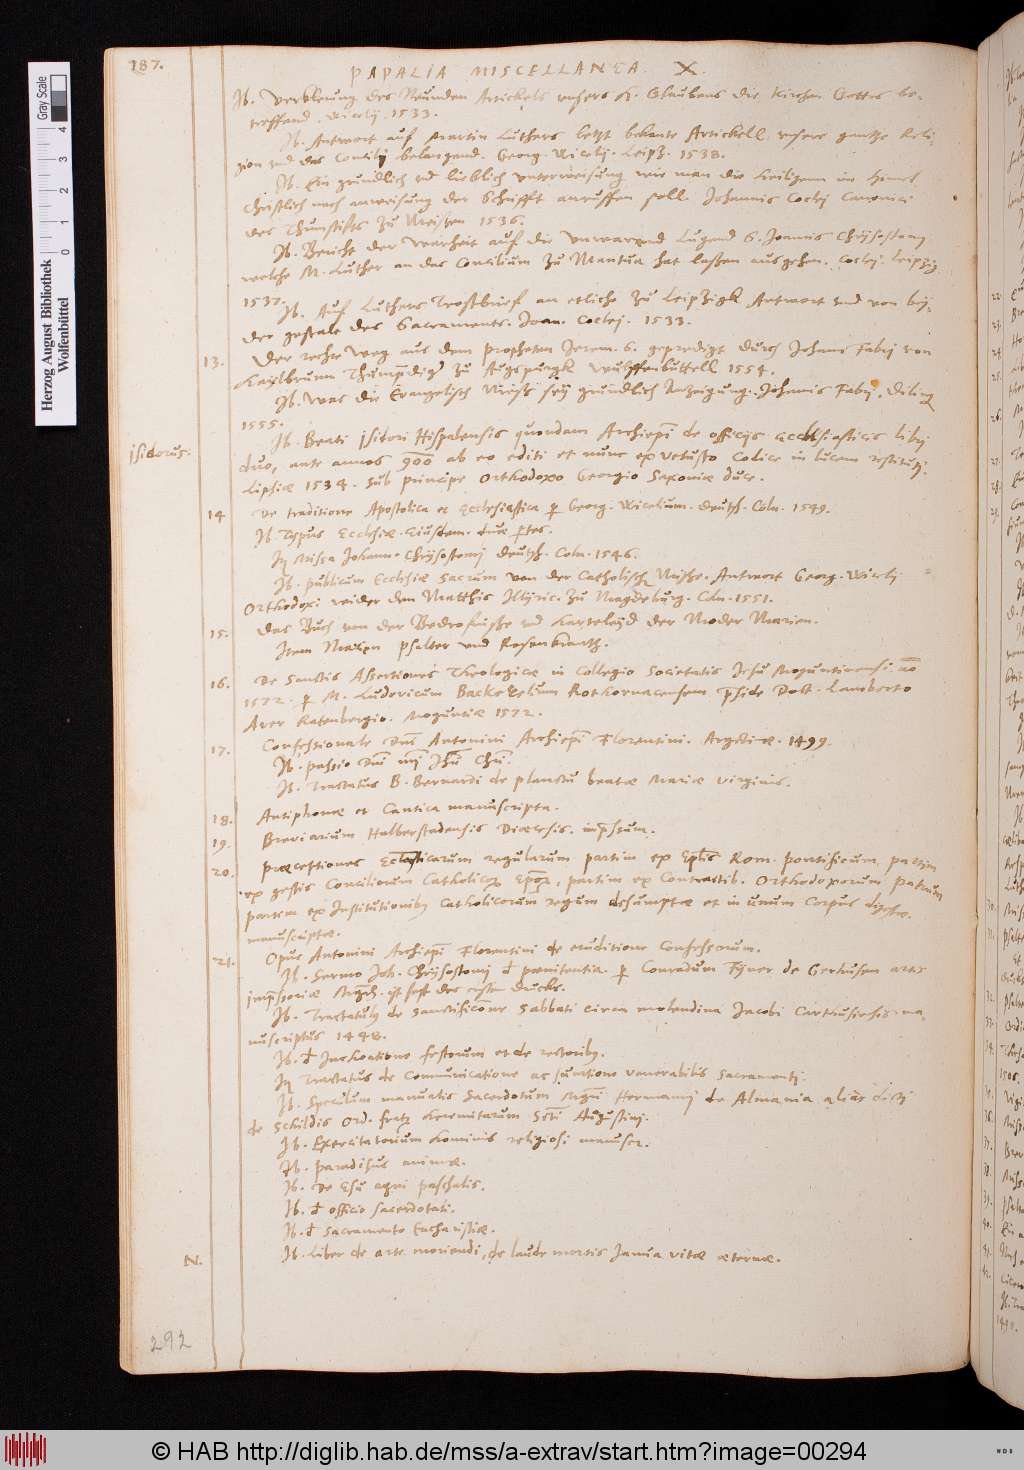 187.
PAPALIA MISCELLANEA. X.
Jb. Verklerung des Neunden Artickels unsers H. Glaubens die Kirchen Gottes be-
treffend. Wicelij. 1533.
Jb. Antwort auf Martin Luthers letzt bekante Artickell unsere gantze Reli-
gion und das Concily belangend. Georg. Wicelij. Leipz. 1538.
Jb. Ein grundlich und lieblich unterweisung wie man die Heiligenn im Himel
Christlich nach anweisung der Schrifft anruffen soll. Johannis Coclei Canonici
des Thumstiffts zu Meissen 1536.
Jb. Bericht der Warheit auf die Lugend S. Joannis Chrysostomi
welche M. Luther an das Concilium zu Mantua hat lassen ausgehen. Coclej. Leipzig
1537.
Jb. Auf Luthers Trostbrief an etliche zu Leipzigk Antwort und von bey-
der gestale des Sacraments. Joan. Coclej. 1533.
13. Der rechte Weg aus dem Propheten Jerem. 6. gepredigt durch Johann Fabrj von
Haylbrunn Thumpdiger zu Augspurgk Wulffenbuttell 1554.
Jb. Was die Evangelisch Mess sey grundlich Anzeigung. Johannis Fabrj. Diling
1555.
isidorus.
Jb. Beati Jsidori Hispalensis quondam Archiepi de officijs ecclesiasticis libri
duo, ante annos 900 ab eo editi et nunc ex vetusto Codice in lucem restituti.
Lipsiæ 1534. sub principe Orthodoxo Georgio Saxoniæ duce.
14 De traditione Apostolica et Ecclesiastica p Georg. Wicelium. deutsch. Coln. 1549.
Jb. Typus Ecclesiæ. Eiusdem. duæ ptes.
Jtem Missa Johann. Chrysostomj deutsch. Coln. 1546.
Jb. publicum Ecclesiæ sacrum von der Catholischen Messe. Antwort Georg. Wicelij
Orthodoxi wider den Matthis Illyric. zu Magdeburg. Coln. 1551.
15. Das Buch von der Bedrofnisse und Herteleyd der Moder Marien.
Item Marien Psalter und Rosenkrantz.
16. De Sanctis Assertiones Theologicæ in Collegio Societatis Jesu Moguntinensi. ao
1572. p M. Ludovicum Rothornacensem pside Doct. Lamberto
Aver Ratenbergio. Moguntiæ 1572.
17. Confessionale Dni Antonini Archiepi Florentini. Argetinæ. 1499.
Jb. passio Dni nri Jhu Chri.
Jb. Tractatus B. Bernardi de planctu beatæ Mariæ virginis.
18. Antiphonæ et Cantica manuscripta.
19. Breviarium Halberstadensis Diœcesis. impssum.
20. Præceptiones Eclesticarum regularum partim ex Eplis Rom. pontificum, partim
ex gestis Conciliorum Catholicor Epor, partim ex Contractib. Orthodoxorum Patrum
partim ex Institutionibus Catholicorum regum desumptæ et in unum Corpus digestæ.
manuscriptæ.
21. Opus Antonini Archiepi Florentini de eruditione Confessorum.
Jb. Sermo Joh. Chrysostomj d pœnitentia. p Conradum Fyner de Gerhusen artis
impssoriæ Mgrm. ist fast des ersten Drucks.
Jb. Tractatulus de Sanctificone Sabbati circa molendina Jacobi Carthusiensis ma-
nuscriptus 1448.
Jb. d Inchoatione festorum et de rectoribus.
Jtem Tractatus de Communicatione ac sumtione venerabilis sacramenti.
Jb. Speculum manualis Sacerdotum Mgri Hermannj de Almania alias dictj
de Schildis Ord. fratrum Heremitarum Scti Augustinj.
Jb. Exercitatorium hominis religiosi manuscr.
Jb. Paradisus animæ.
Jb. De Esu agni paschalis.
Jb. d officio sacerdotali.
Jb. d Sacramento Eucharistiæ.
N. Jb. Liber de arte moriendi, de laude mortis Janua vitæ æternæ.
292
Herzog August Bibliothek
Wolfenbüttel
Gray Scale
0 1 2 3 4
© HAB http://diglib.hab.de/mss/a-extrav/start.htm?image=00294